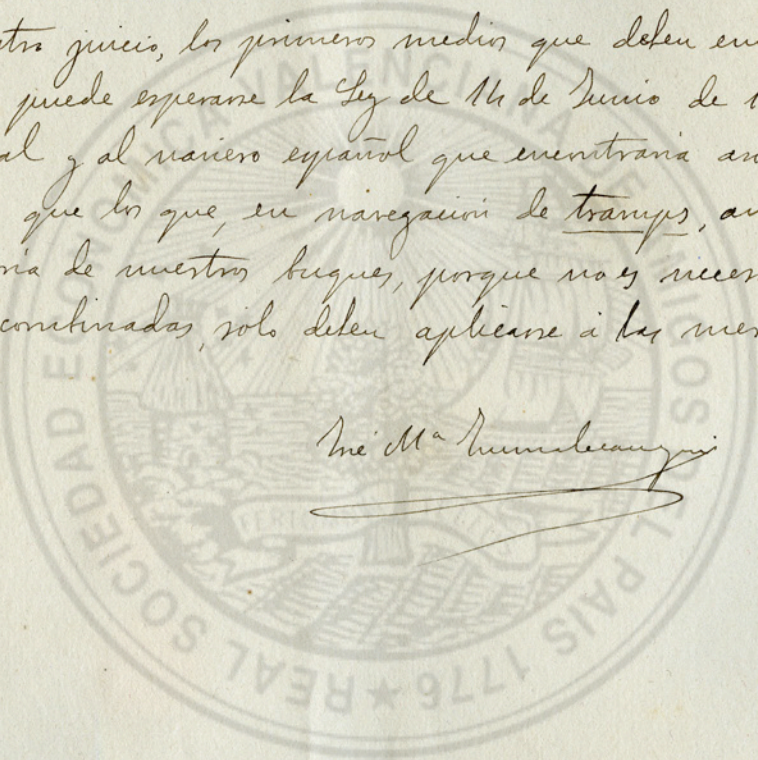 tro juicio, los primeros medios que deben em
puede esperarse la Ley de 14 de Junio de 1
al y al naviero español que encontraria
que los que, en navegación de tramps, au
ria de nuestros buques, porque no es neces
combinadas, solo deben aplicarse á las mer
José Mª Zumalacárregui
REAL SOCIEDAD ECONOMICA VALENCIANA DE AMIGOS DEL PAIS 1776